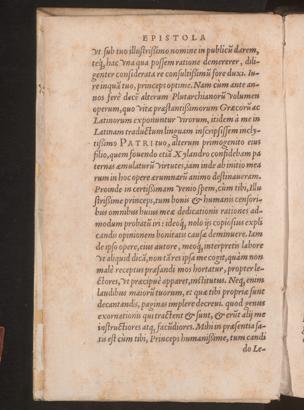 EPISTOLA
vt sub tuo illustrissimo nomine in publicũ darem,
teq́, hac vna qua possem ratione demererer, dili-
genter considerata re consultissimũ fore duxi. Iu-
re inquã tuo, princeps optime. Nam cùm ante an-
nos ferè decẽ alterum Plutarchianorũ volumen
operum, quo vitæ præstantissimorum Græcorũ ac
Latinorum exponuntur virorum, itidem à me in
Latinam traductum linguam inscripsissem incly-
tissimo PATRI tuo, alterum primogenito eius
filio, quem fouendo etiã Xylandro confidebam pa
ternas æmulaturũ virtutes, iam inde ab initio mea
rum in hoc opere ærumnarũ animo destinaueram.
Proinde in certissimam venio spem, cùm tibi, Illu
strissime princeps, tum bonis & humanis censori-
bus omnibus huius meæ dedicationis rationes ad-
modum probatũ iri: ideoq́, nolo ijs copiosius expli
candis opinionem bonitatis causæ deminuere. Iam
de ipso opere, eius autore, meoq́, interpretis labore
vt aliquid dicã, non tã res ipsa me cogit, quàm non
malè receptus præfandi mos hortatur, propter le-
ctores, vt præcipuè apparet, institutus. Neq, enim
laudibus maiorũ tuorum, et quæ tibi propriæ sunt
decantandis, paginas implere decreui. quod genus
exornationis qui tractent & sunt, & erũt alij me
instructiores atq, facũdiores. Mihi in præsentia sa-
tis est cùm tibi, Princeps humanissime, tum candi
do Le-